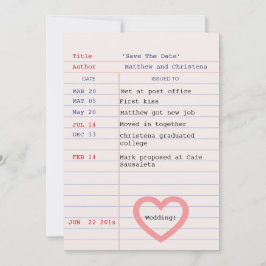 Title 'Save The Date'
Author Matthew and Christena
DATE ISSUED TO
MAR 20 Met at post office
MAY 05 First kiss
May 20 Matthew got new job
JUL 14 Moved in together
DEC 13 christena graduated
college
FEB 14 Mark proposed at Cafe
Sausaleta
JUN 22 201x Wedding!